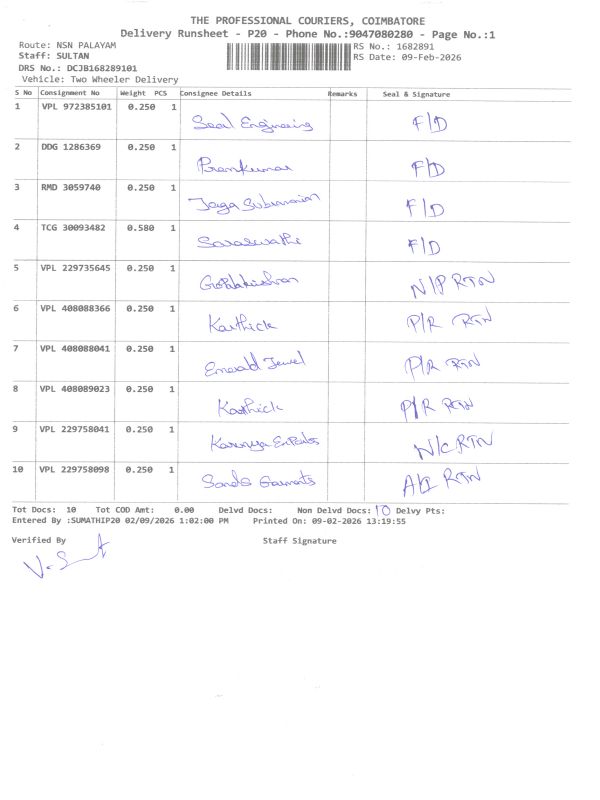 THE PROFESSIONAL COURIERS, COIMBATORE
Delivery Runsheet - P20 - Phone No.:9047080280 - Page No.:1
Route: NSN PALAYAM RS No.: 1682891
Staff: SULTAN RS Date: 09-Feb-2026
DRS No.: DCJB168289101
Vehicle: Two Wheeler Delivery
S No Consignment No Weight PCS Consignee Details Remarks Seal & Signature
1 VPL 972385101 0.250 1 Seal Engineering F/D
2 DDG 1286369 0.250 1 Premkumar F/D
3 RMD 3059740 0.250 1 Jaga Subramanian F/D
4 TCG 30093482 0.580 1 Saraswathi F/D
5 VPL 229735645 0.250 1 Gopalakrishnan N/P RTN
6 VPL 408088366 0.250 1 Karthick P/R RTN
7 VPL 408088041 0.250 1 Emerald Jewel P/R RTN
8 VPL 408089023 0.250 1 Karthick P/R RTN
9 VPL 229758041 0.250 1 Karunya N/C RTN
10 VPL 229758098 0.250 1 Garments RTN
Tot Docs: 10 Tot COD Amt: 0.00 Delvd Docs: Non Delvd Docs: 10 Delvy Pts:
Entered By :SUMATHIP20 02/09/2026 1:02:00 PM Printed On: 09-02-2026 13:19:55
Verified By Staff Signature